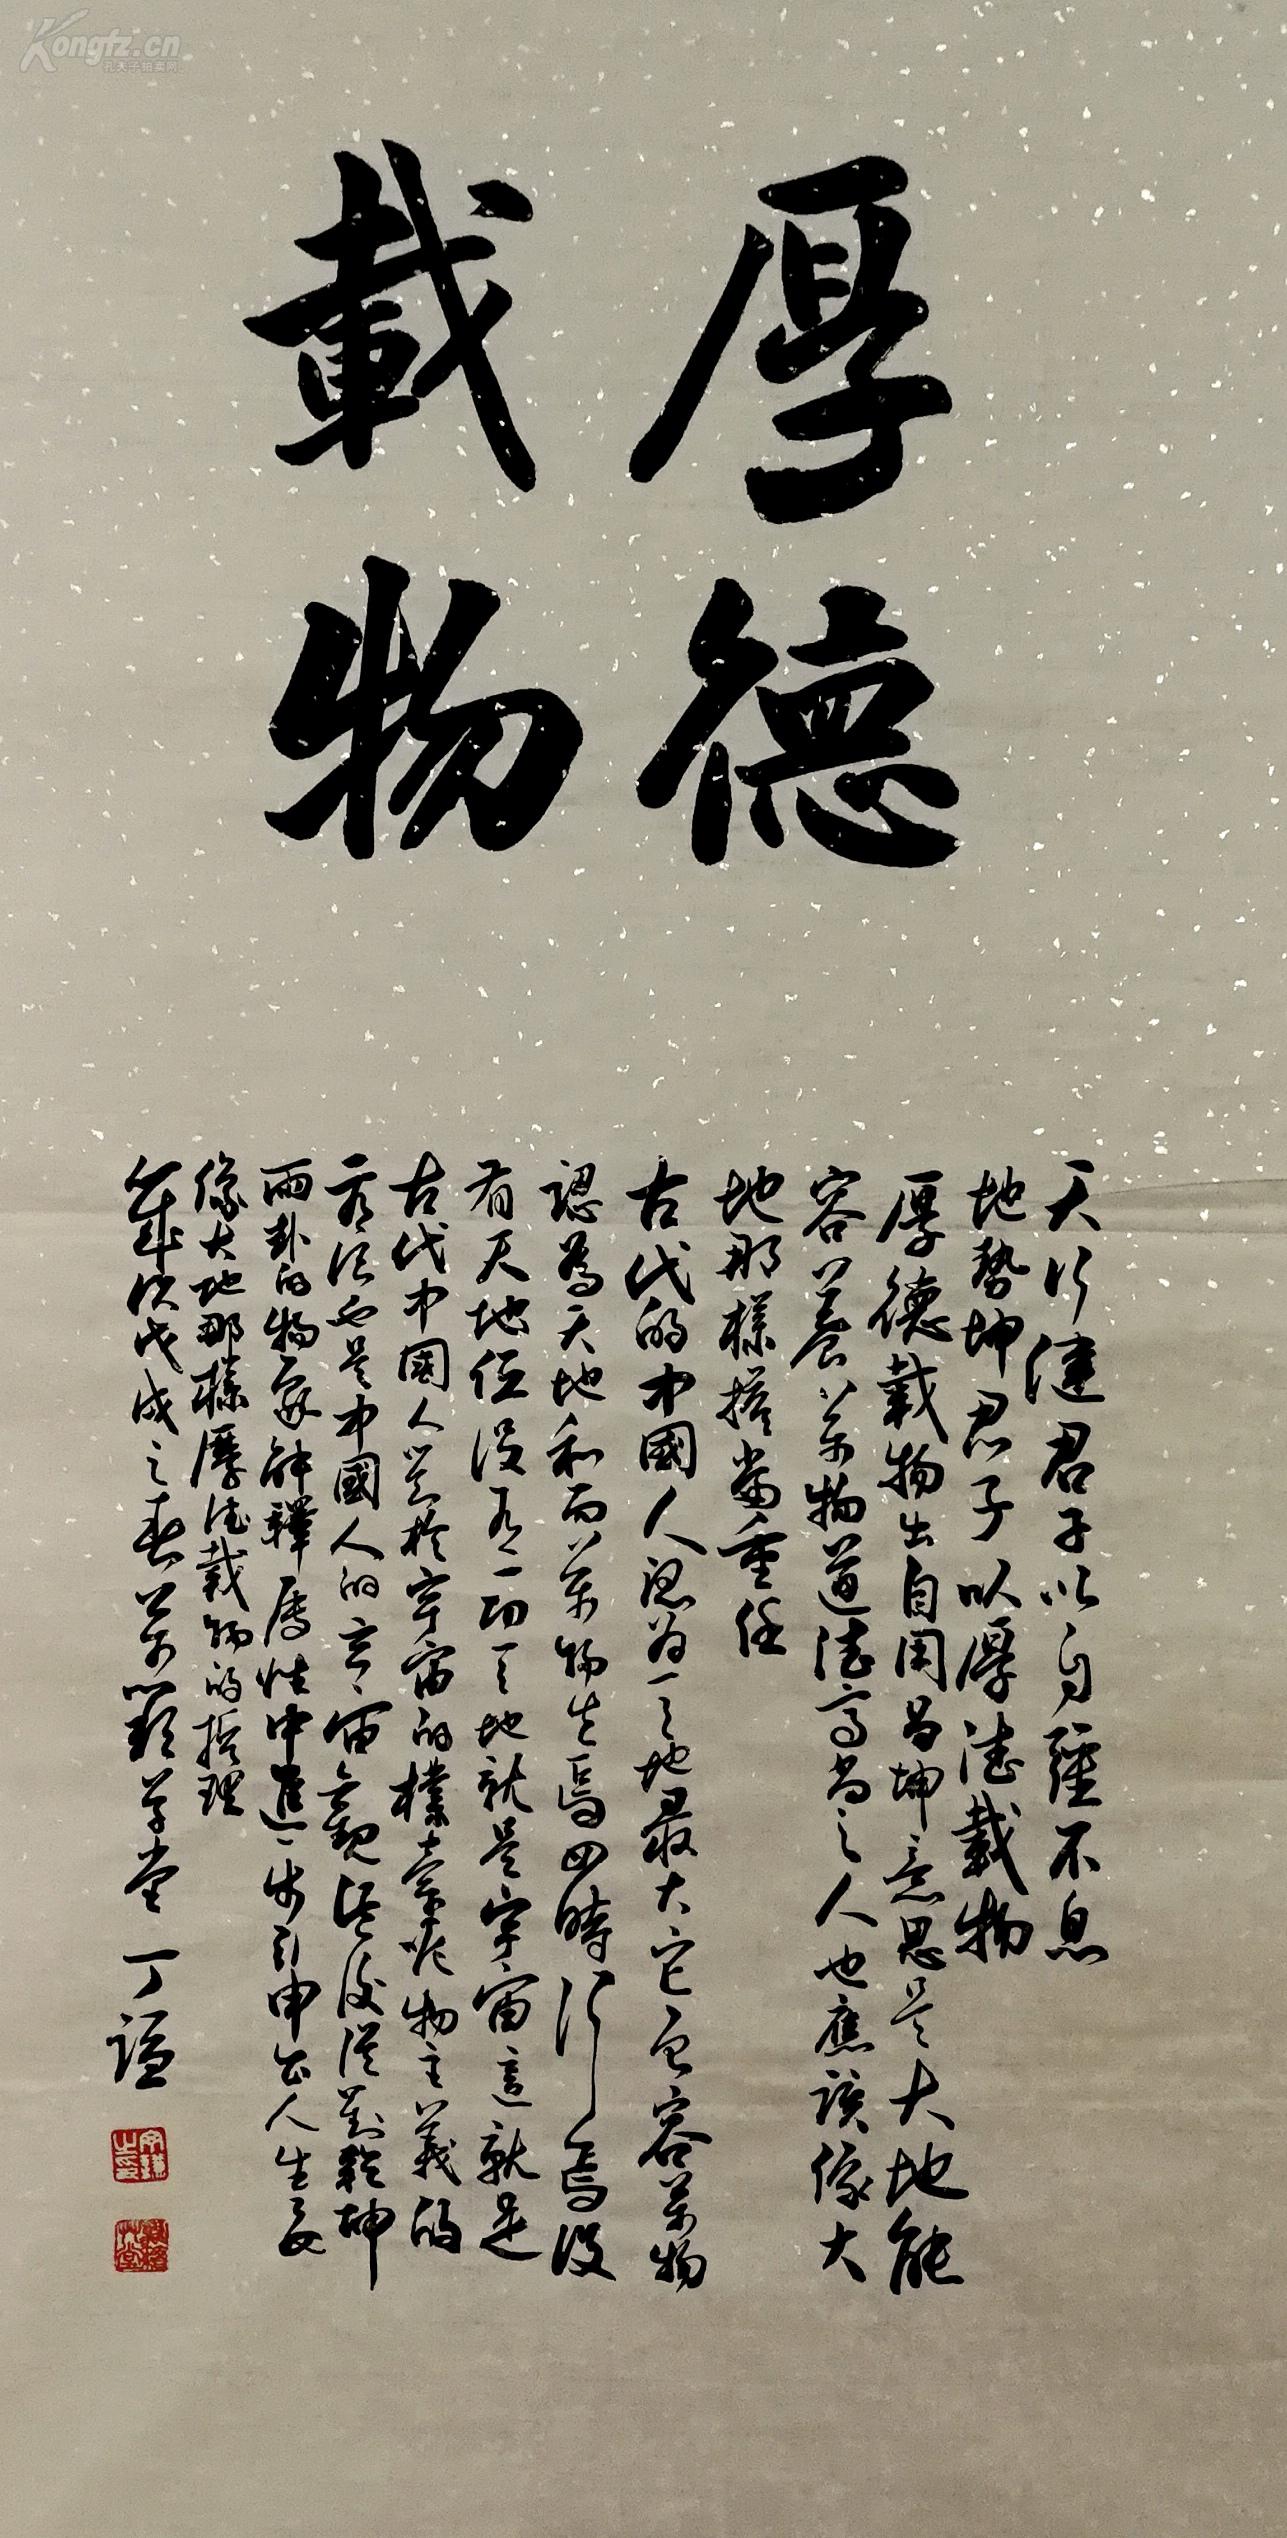 Kongfz.cn
孔夫子拍卖网
厚德
載物
天行健君子以自強不息
地勢坤君子以厚德載物
厚德載物出自周易坤意思是大地能
容養萬物道德高尚之人也應該像大
地那樣擔當重任
古代的中國人認為天地最大它包容萬物
認為天地和而萬物生焉四時行焉沒
有天地便沒有一切天地就是宇宙這就是
古代中國人對於宇宙的樸素唯物主義的
看法也是中國人的宇宙觀後從對乾坤
兩卦的物象解釋屬性中進一步引申出人生要
像大地那樣厚德載物的哲理
歲次戊戌之春 草堂 丁謙